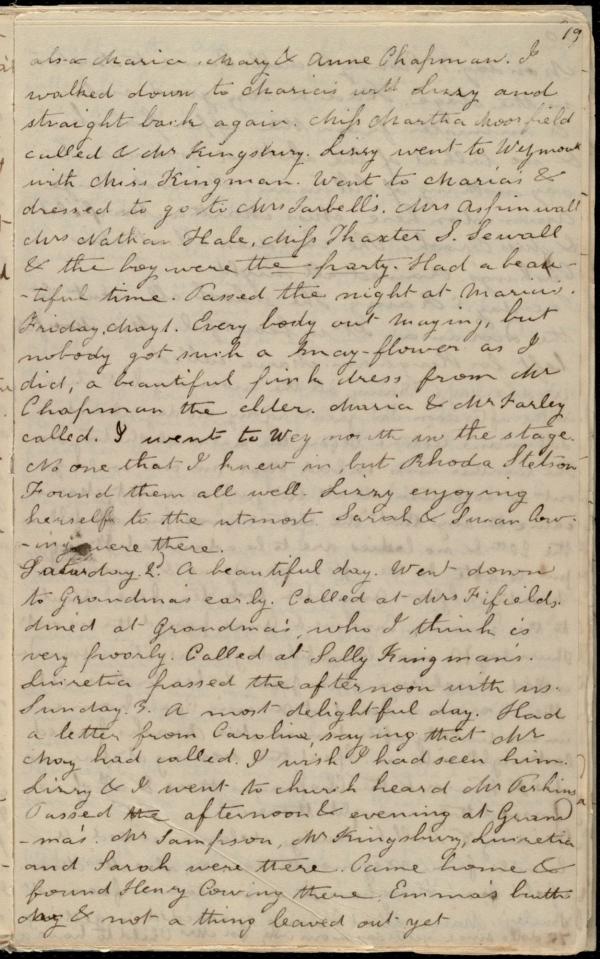 19
also Maria, Mary & Anne Chapman. I
walked down to Maria's with Lizzy and
straight back again. Miss Martha Moorfield
called & Mr Kingsbury. Lizzy went to Weymouth
with Miss Kingman. Went to Maria's &
dressed to go to Mrs Tarbell's. Mrs Aspinwall
Mrs Nathan Hale, Miss Thaxter S. Sewall
& the boy were the party. Had a beau-
-tiful time. Passed the night at Maria's.
Friday, May 1. Every body out Maying, but
nobody got such a may-flower as I
did, a beautiful pink dress from Mr
Chapman the elder. Maria & Mr Farley
called. I went to Weymouth in the stage.
No one that I knew in, but Rhoda Stetson
Found them all well. Lizzy enjoying
herself to the utmost. Sarah & Susan Cow-
-ing were there.
Saturday. 2. A beautiful day. Went down
to Grandma's early. Called at Mrs Fifield's.
dined at Grandma's, who I think is
very poorly. Called at Sally Kingman's.
Luiretia passed the afternoon with us.
Sunday. 3. A most delightful day. Had
a letter from Caroline, saying that Mr
May had called. I wish I had seen him.
Lizzy & I went to church heard Mr Perkins
Passed the afternoon & evening at Grand
-ma's. Mr Sampson, Mr Kingsbury, Luiretia
and Sarah were there. Came home &
found Henry Cowing there. Emma's birth
day & not a thing leaved out yet